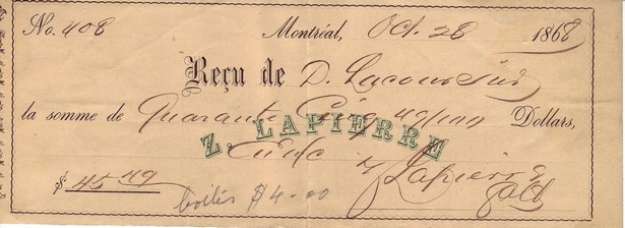 No. 408 Montréal, Oct. 28 1868
Reçu de D. Lacour
la somme de Quarante Cinq 49/100 Dollars,
Z. LAPIERRE
Z Lapierre
$ 45 49
$4-00